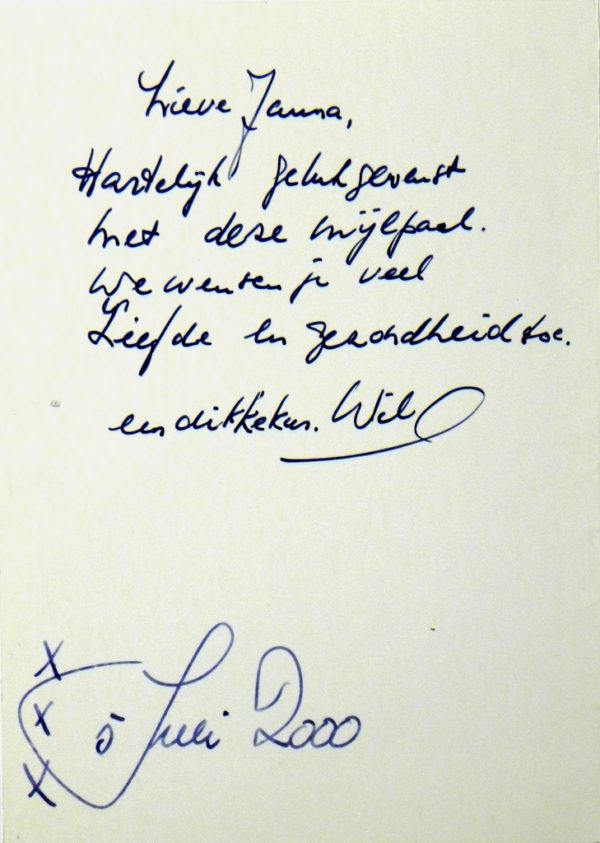 Lieve Janna,
Hartelijk gelukgewenst
met deze mijlpaal.
We wensen je veel
Liefde en gezondheid toe.
een dikke kus. Wil
x
x 5 Juli 2000
x